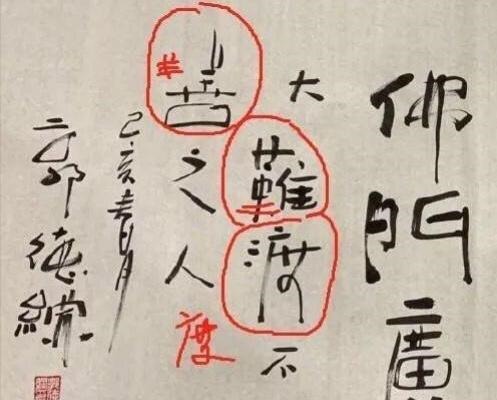 佛門廣
大難渡不
善之人
己亥春月
郭德纲
度